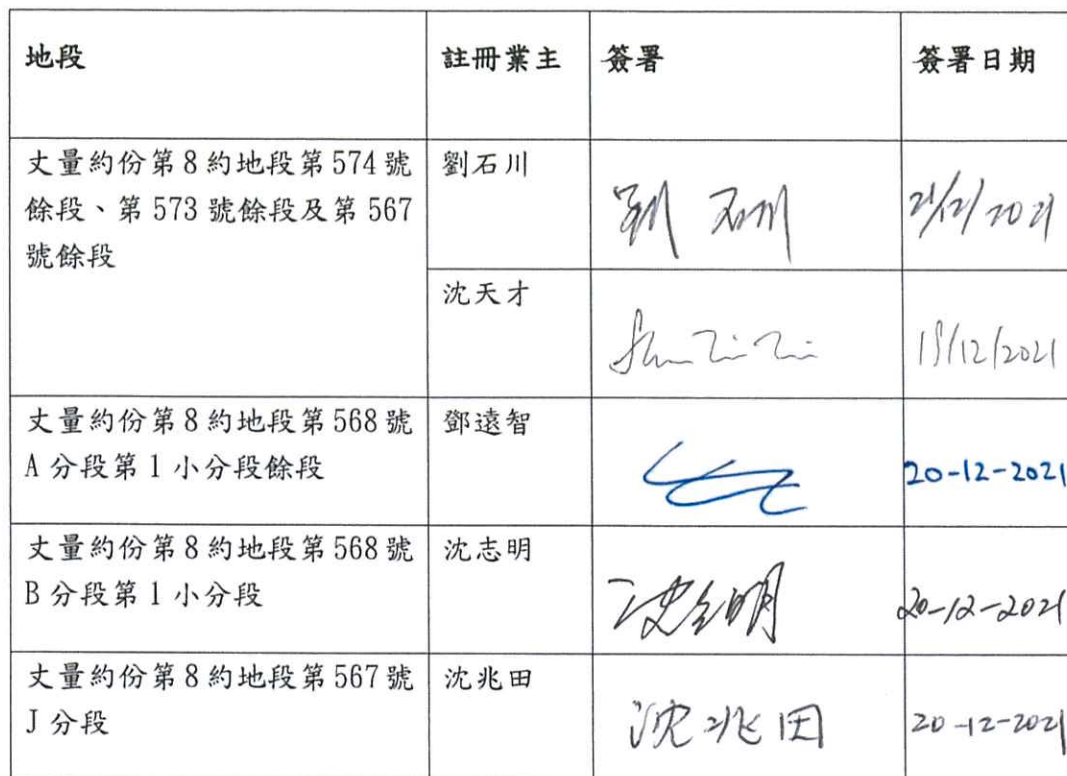 地段 註冊業主 簽署 簽署日期
丈量約份第8約地段第574號 劉石川
餘段、第573號餘段及第567
號餘段
劉 石川 21/12/2021
沈天才
19/12/2021
丈量約份第8約地段第568號 鄧遠智
A分段第1小分段餘段
20-12-2021
丈量約份第8約地段第568號 沈志明
B分段第1小分段
沈志明 20-12-2021
丈量約份第8約地段第567號 沈兆田
J分段
沈兆田 20-12-2021